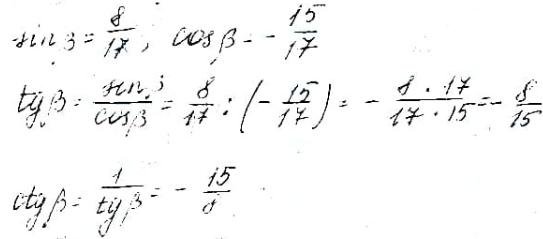 sin β = 8/17, cos β = - 15/17
tg β = sin β / cos β = 8/17 : (- 15/17) = - 8 · 17 / 17 · 15 = - 8/15
ctg β = 1 / tg β = - 15/8